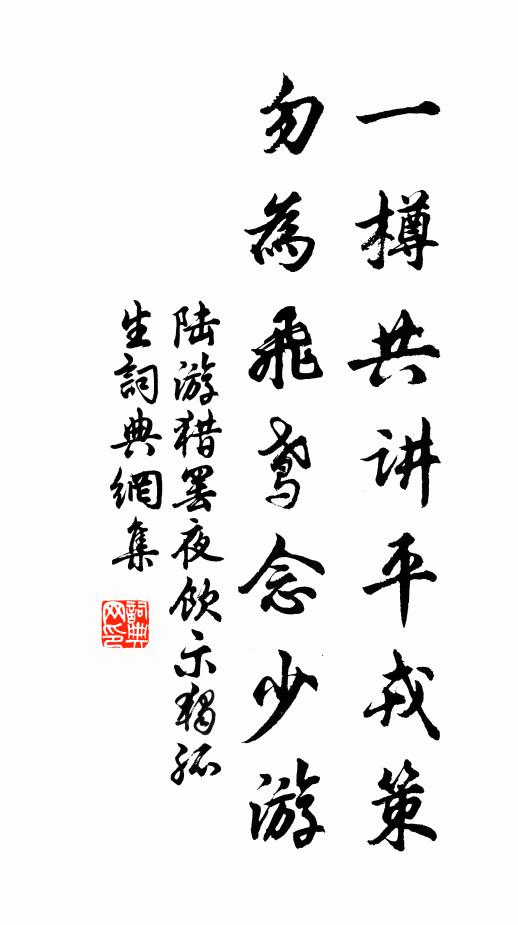 一樽共讲平戎策
勿為飛鸢念少游
陆游猎罢夜飲示獨孤
生詞典網集
詞典
网印